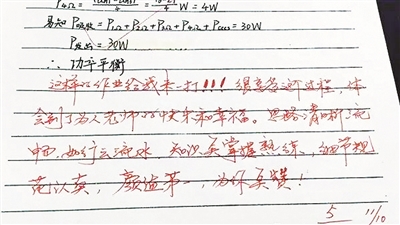 P₄Ω = 4 = 4 W = 4W
易知 P吸收 = P₁Ω + P₂Ω + P₃Ω + P₄Ω + Pccs = 30W
P发出 = 30W
∴ 功率平衡
这样的作业给我来一打!!! 很享受这个过程,体
会到了为人老师的快乐和幸福。思路清晰了流
畅,如行云流水,知识点掌握熟练,细节规
范认真,颜值第一,为你点赞!
5 11/10